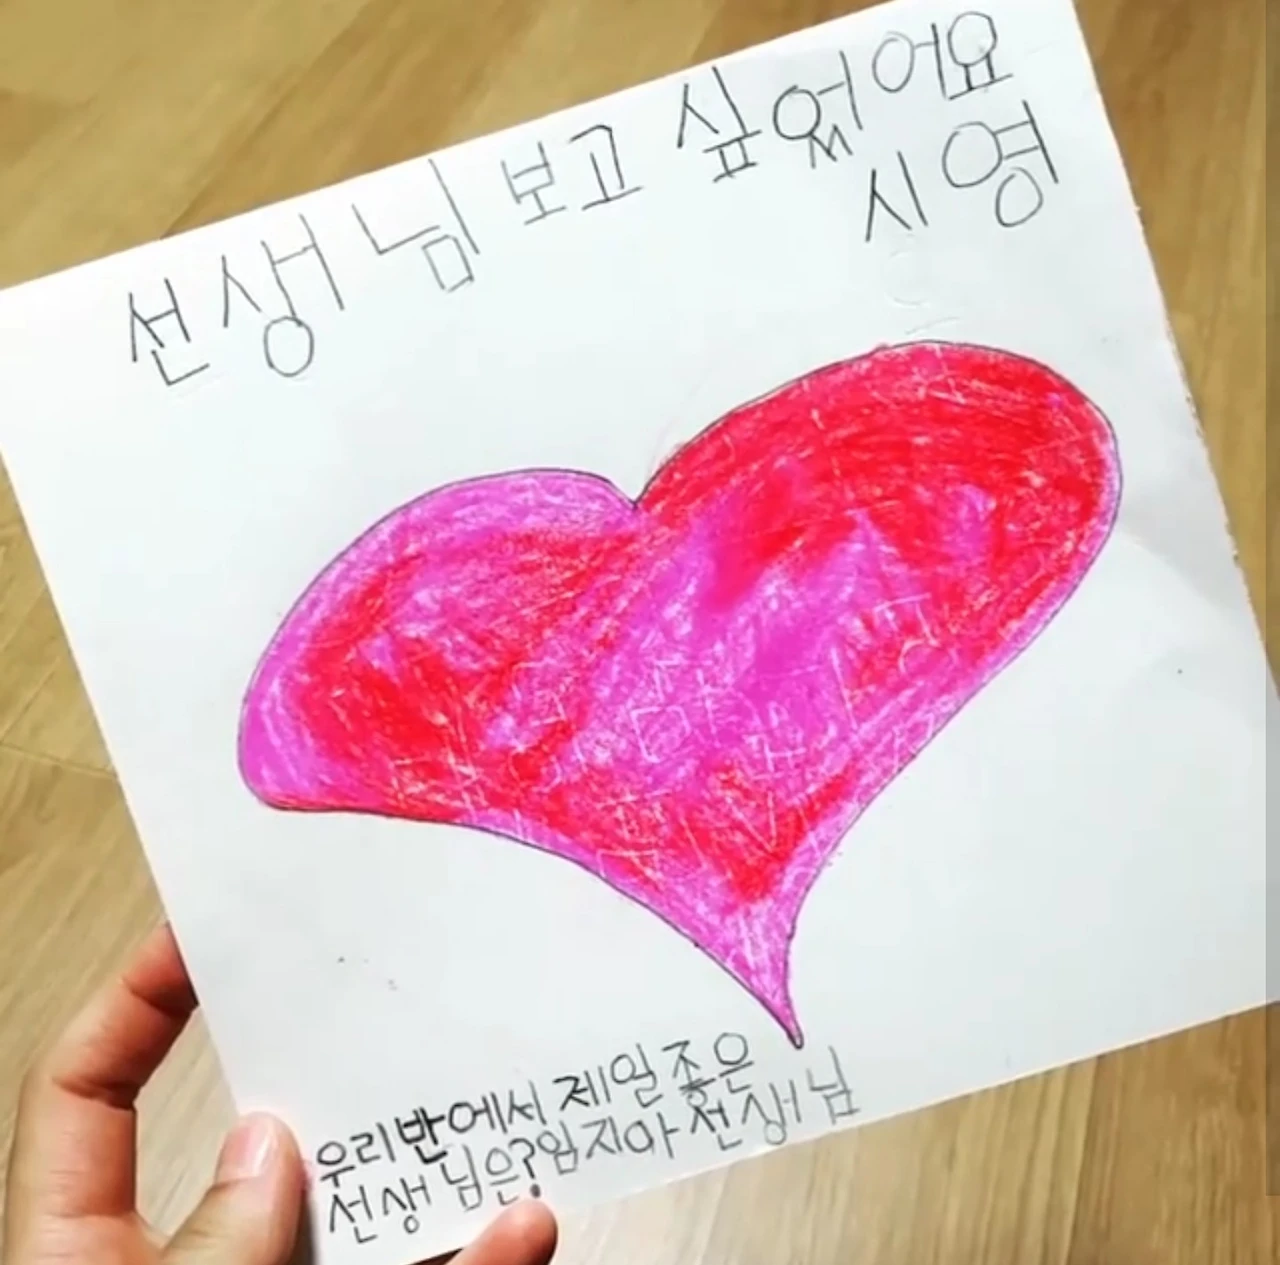 선생님 보고 싶었어요
시영
우리반에서 제일 좋은
선생님은? 임지아 선생님